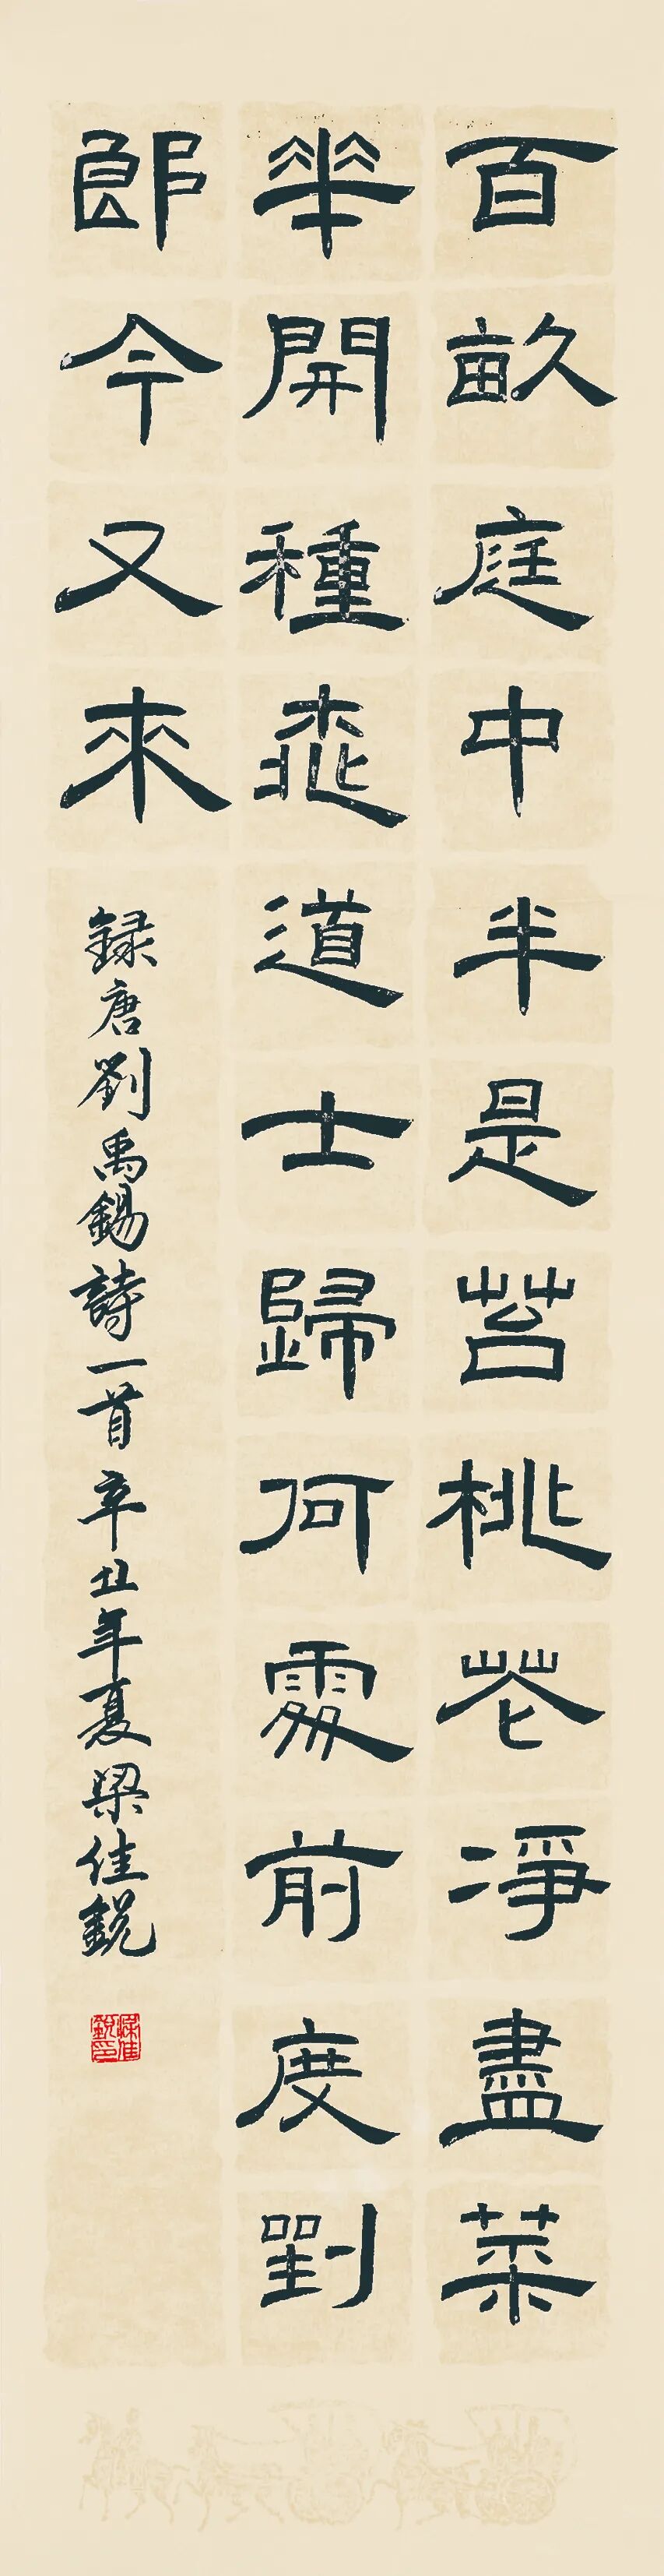 百畝庭中半是苔桃花淨盡菜
華開種桃道士歸何處前度劉
郎今又來
録唐劉禹錫詩一首辛丑年夏梁佳銳
梁佳銳印